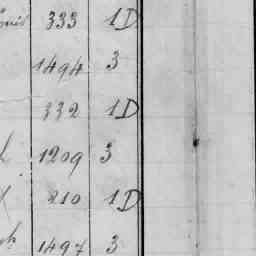 333 1D
1494 3
332 1D
1209 3
210 1D
1497 3